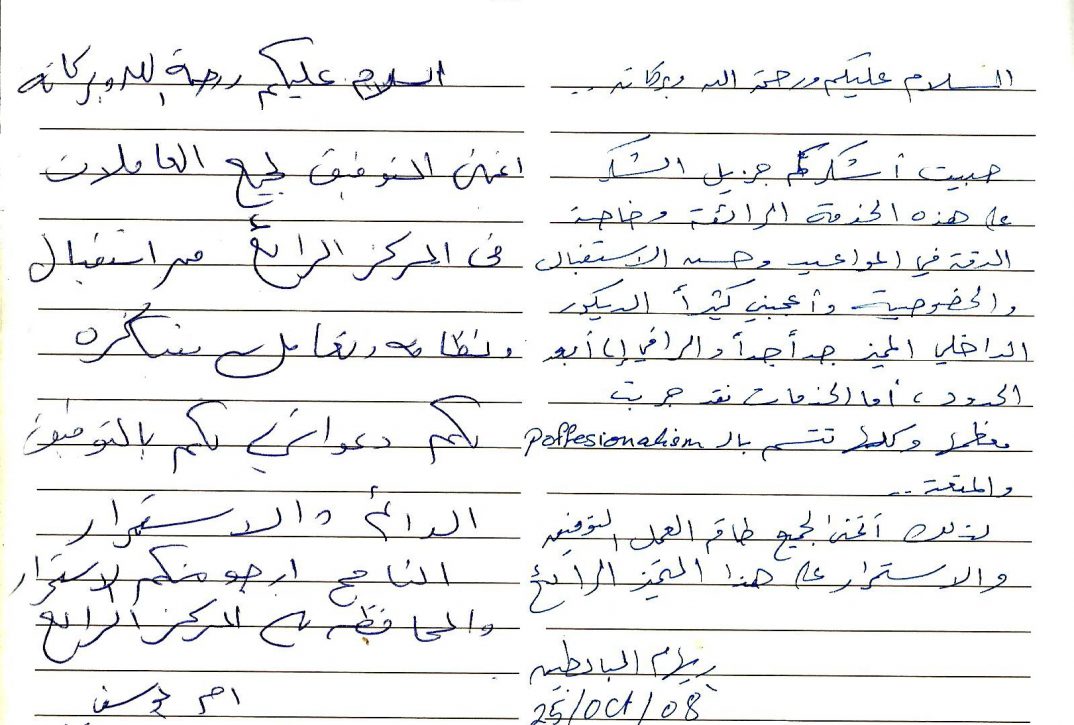 السلام عليكم ورحمة الله وبركاته ..
حبيت أشكركم جزيل الشكر
على هذه الخدمة الرائعة وخاصة
الدقة في المواعيد وحسن الاستقبال
والخصوصية وأعجبني كثيراً الديكور
الداخلي المميز جداً جداً والراقي إلى أبعد
الحدود، أما الخدمات فقد جربت
معظمها وكلها تتسم بالـ Poffesionalism
والمتعة ..
لذلك أتمنى لجميع طاقم العمل التوفيق
والاستمرار على هذا التميز الرائع
25/Oct/08
السلام عليكم ورحمة الله وبركاته
اتمنى التوفيق لجميع العاملات
في المركز الرائع من استقبال
ونظافه وتعامل
لكم دعواتي لكم بالتوفيق
الدائم والاستمرار
الناجح ارجو منكم الاستمرار
والمحافظه على المركز الرائع
يوسف